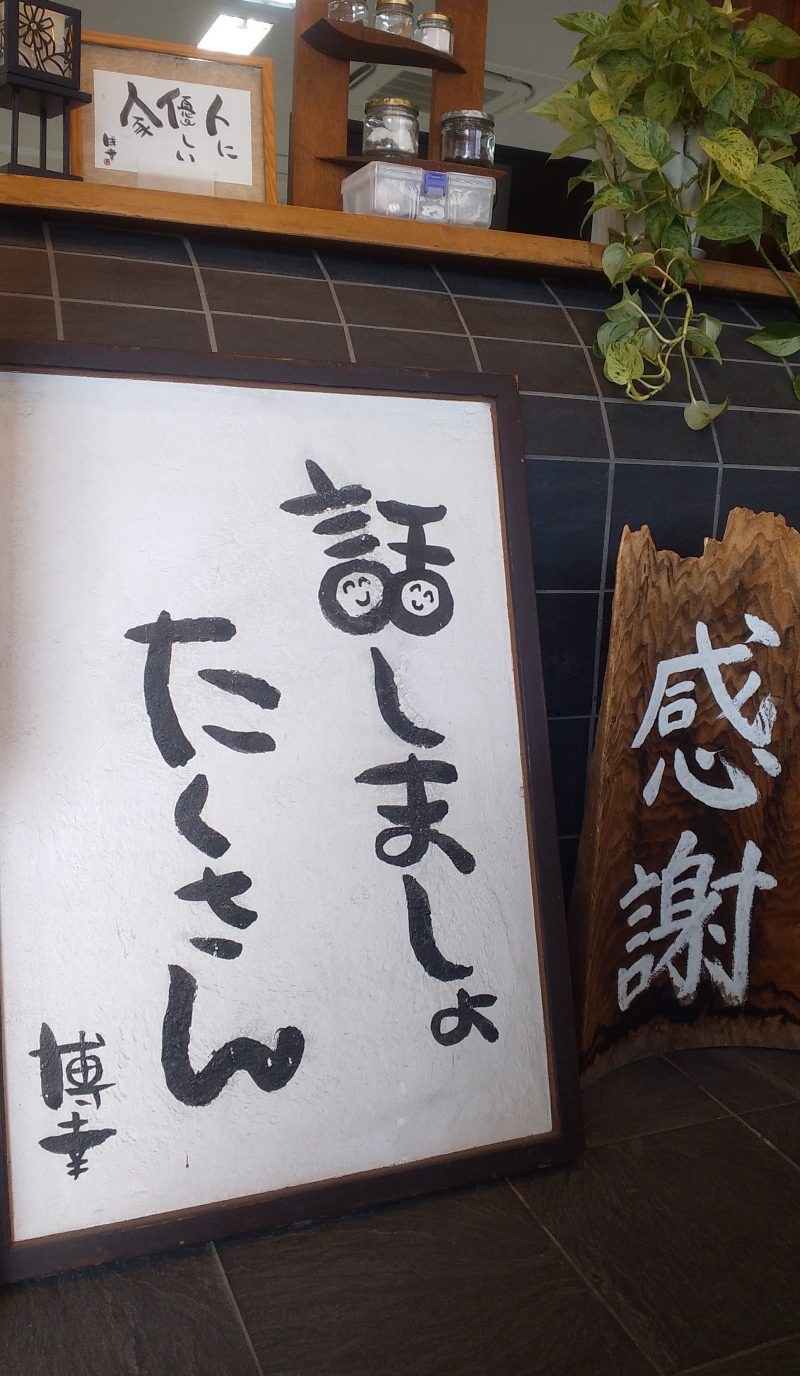 人に
優しい
家
博幸
話しましょ
たくさん
博幸
感謝